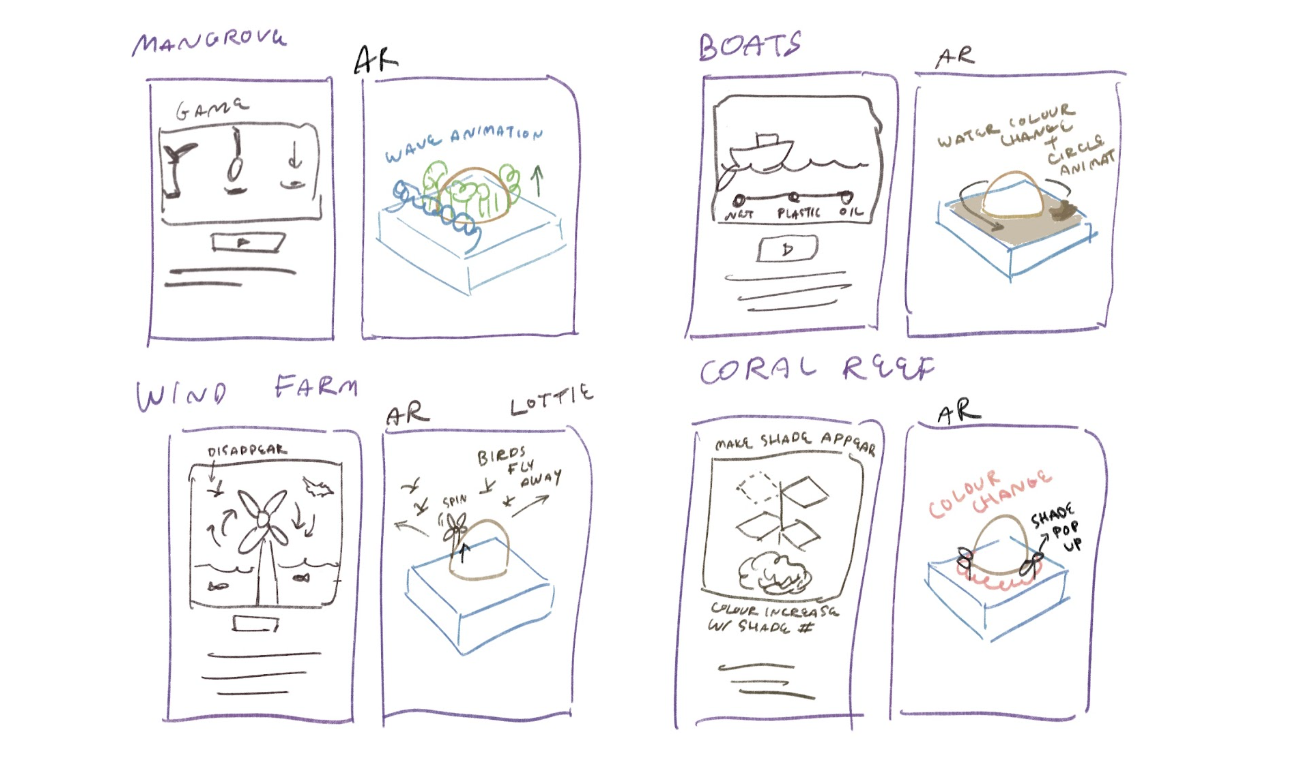 MANGROVE
AR
GAME
WAVE ANIMATION
BOATS
AR
NET PLASTIC OIL
WATER COLOUR
CHANGE
+
CIRCLE
ANIMAT
WIND FARM
AR
LOTTIE
DISAPPEAR
BIRDS
FLY
AWAY
SPIN
CORAL REEF
AR
MAKE SHADE APPEAR
COLOUR INCREASE
W/ SHADE #
COLOUR
CHANGE
SHADE
POP
UP